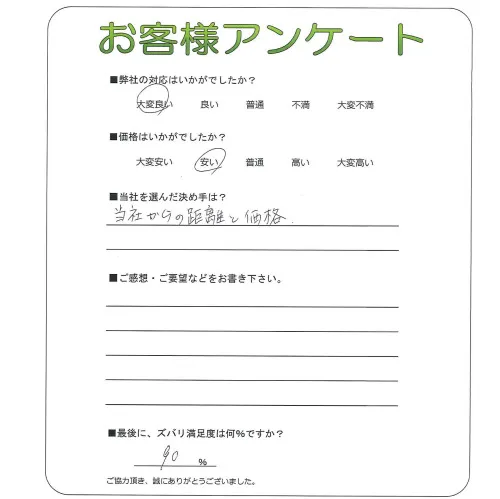 お客様アンケート
■弊社の対応はいかがでしたか？
大変良い 良い 普通 不満 大変不満
■価格はいかがでしたか？
大変安い 安い 普通 高い 大変高い
■当社を選んだ決め手は？
当社からの距離と価格.
■ご感想・ご要望などをお書き下さい。
■最後に、ズバリ満足度は何%ですか？
90 %
ご協力頂き、誠にありがとうございました。